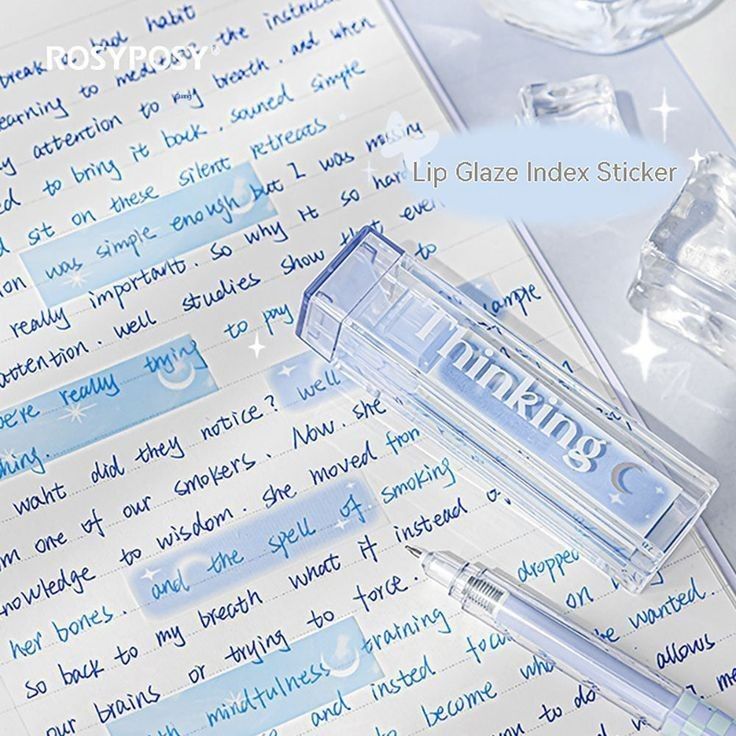 ROSYPOSY®
break a bad habit
earning to med the instruc
y attention to my breath. and when
ed to bring it back. souned simple
d sit on these silent retreats
ion was simple enough but I was missing
really important. So why it so har
attention. well studies show that even
ere really trying to pay example to
hing. well
waht did they notice?
m one of our smokers. Now. she
nowledge to wisdom. she moved from
her bones. and the spell of smoking
so back to my breath what it instead o
our brains or trying to force. dropped on
th mindfulness training he wanted.
and insted focu
to become who allows
you to do
Lip Glaze Index Sticker
Thinking